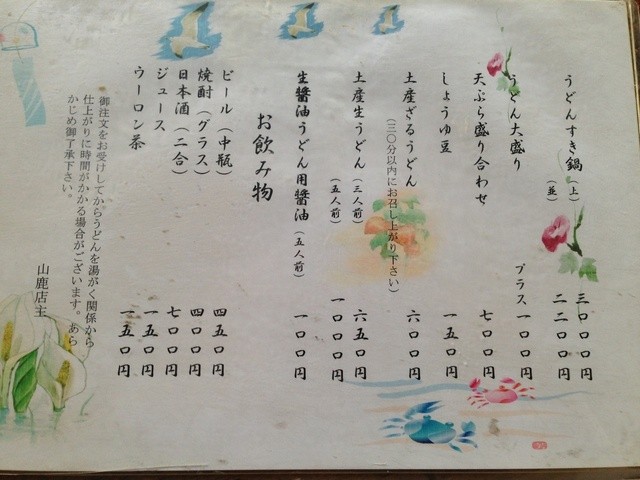 うどんすき鍋（上） 三〇〇〇円
（並） 二二〇〇円
うどん大盛り プラス 一〇〇円
天ぷら盛り合わせ 七〇〇円
しょうゆ豆 一五〇円
土産ざるうどん 六〇〇円
（三〇分以内にお召し上がり下さい）
土産生うどん（三人前） 六五〇円
（五人前） 一〇〇〇円
生醤油うどん用醤油（五人前） 一〇〇円
お飲み物
ビール（中瓶） 四五〇円
焼酎（グラス） 四〇〇円
日本酒（二合） 七〇〇円
ジュース 一五〇円
ウーロン茶 一五〇円
御注文をお受けしてからうどんを湯がく関係から
仕上がりに時間がかかる場合がございます。あら
かじめ御了承下さい。
山鹿店主